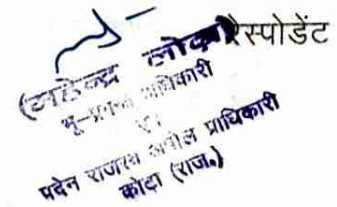 रैस्पोडेंट
(महेन्द्र लोढा)
भू-प्रबन्ध अधिकारी
एवं
पदेन राजस्व अपील प्राधिकारी
कोटा (राज.)